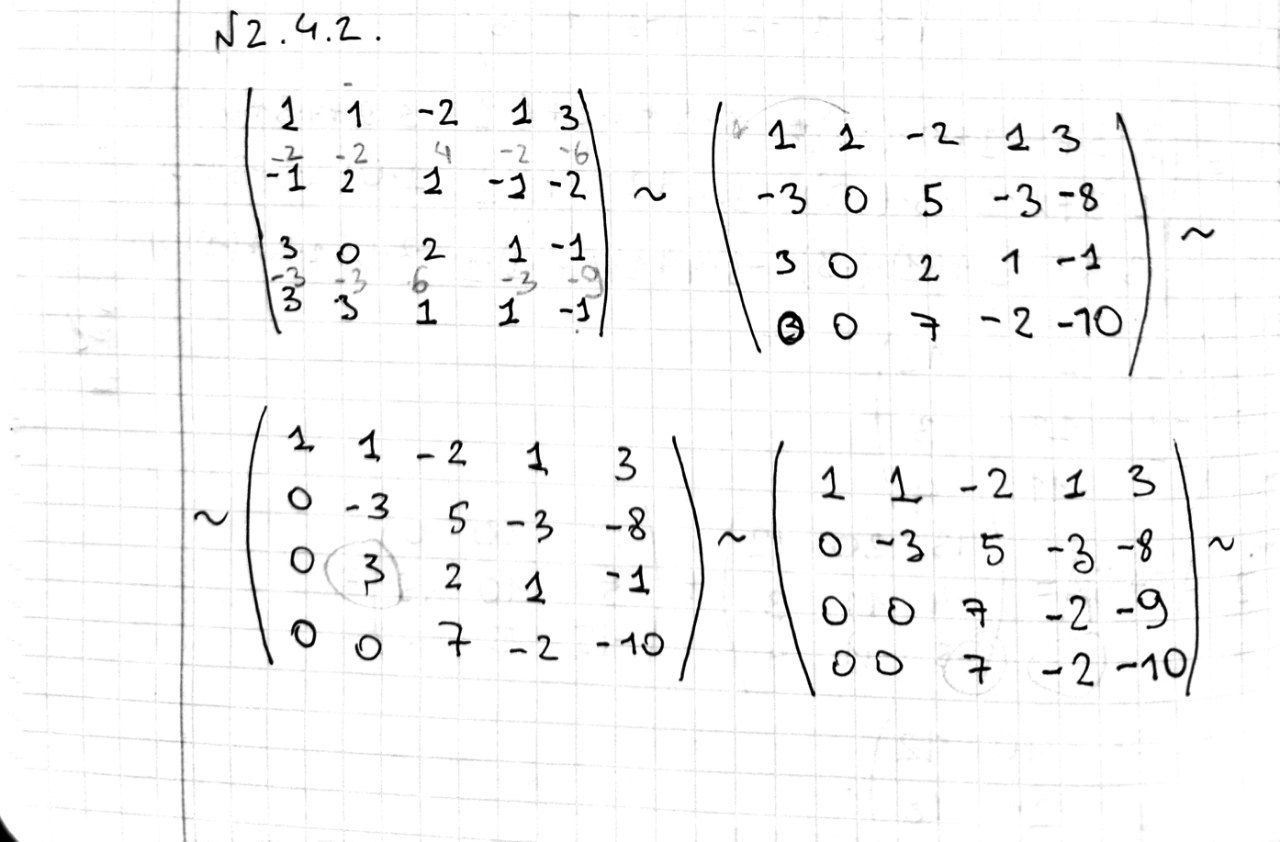 №2.4.2.
1 1 -2 1 3
-2 -2 4 -2 -6
-1 2 1 -1 -2
3 0 2 1 -1
-3 -3 6 -3 -9
3 3 1 1 -1
~
1 1 -2 1 3
-3 0 5 -3 -8
3 0 2 1 -1
0 0 7 -2 -10
~
~
1 1 -2 1 3
0 -3 5 -3 -8
0 3 2 1 -1
0 0 7 -2 -10
~
1 1 -2 1 3
0 -3 5 -3 -8
0 0 7 -2 -9
0 0 7 -2 -10
~